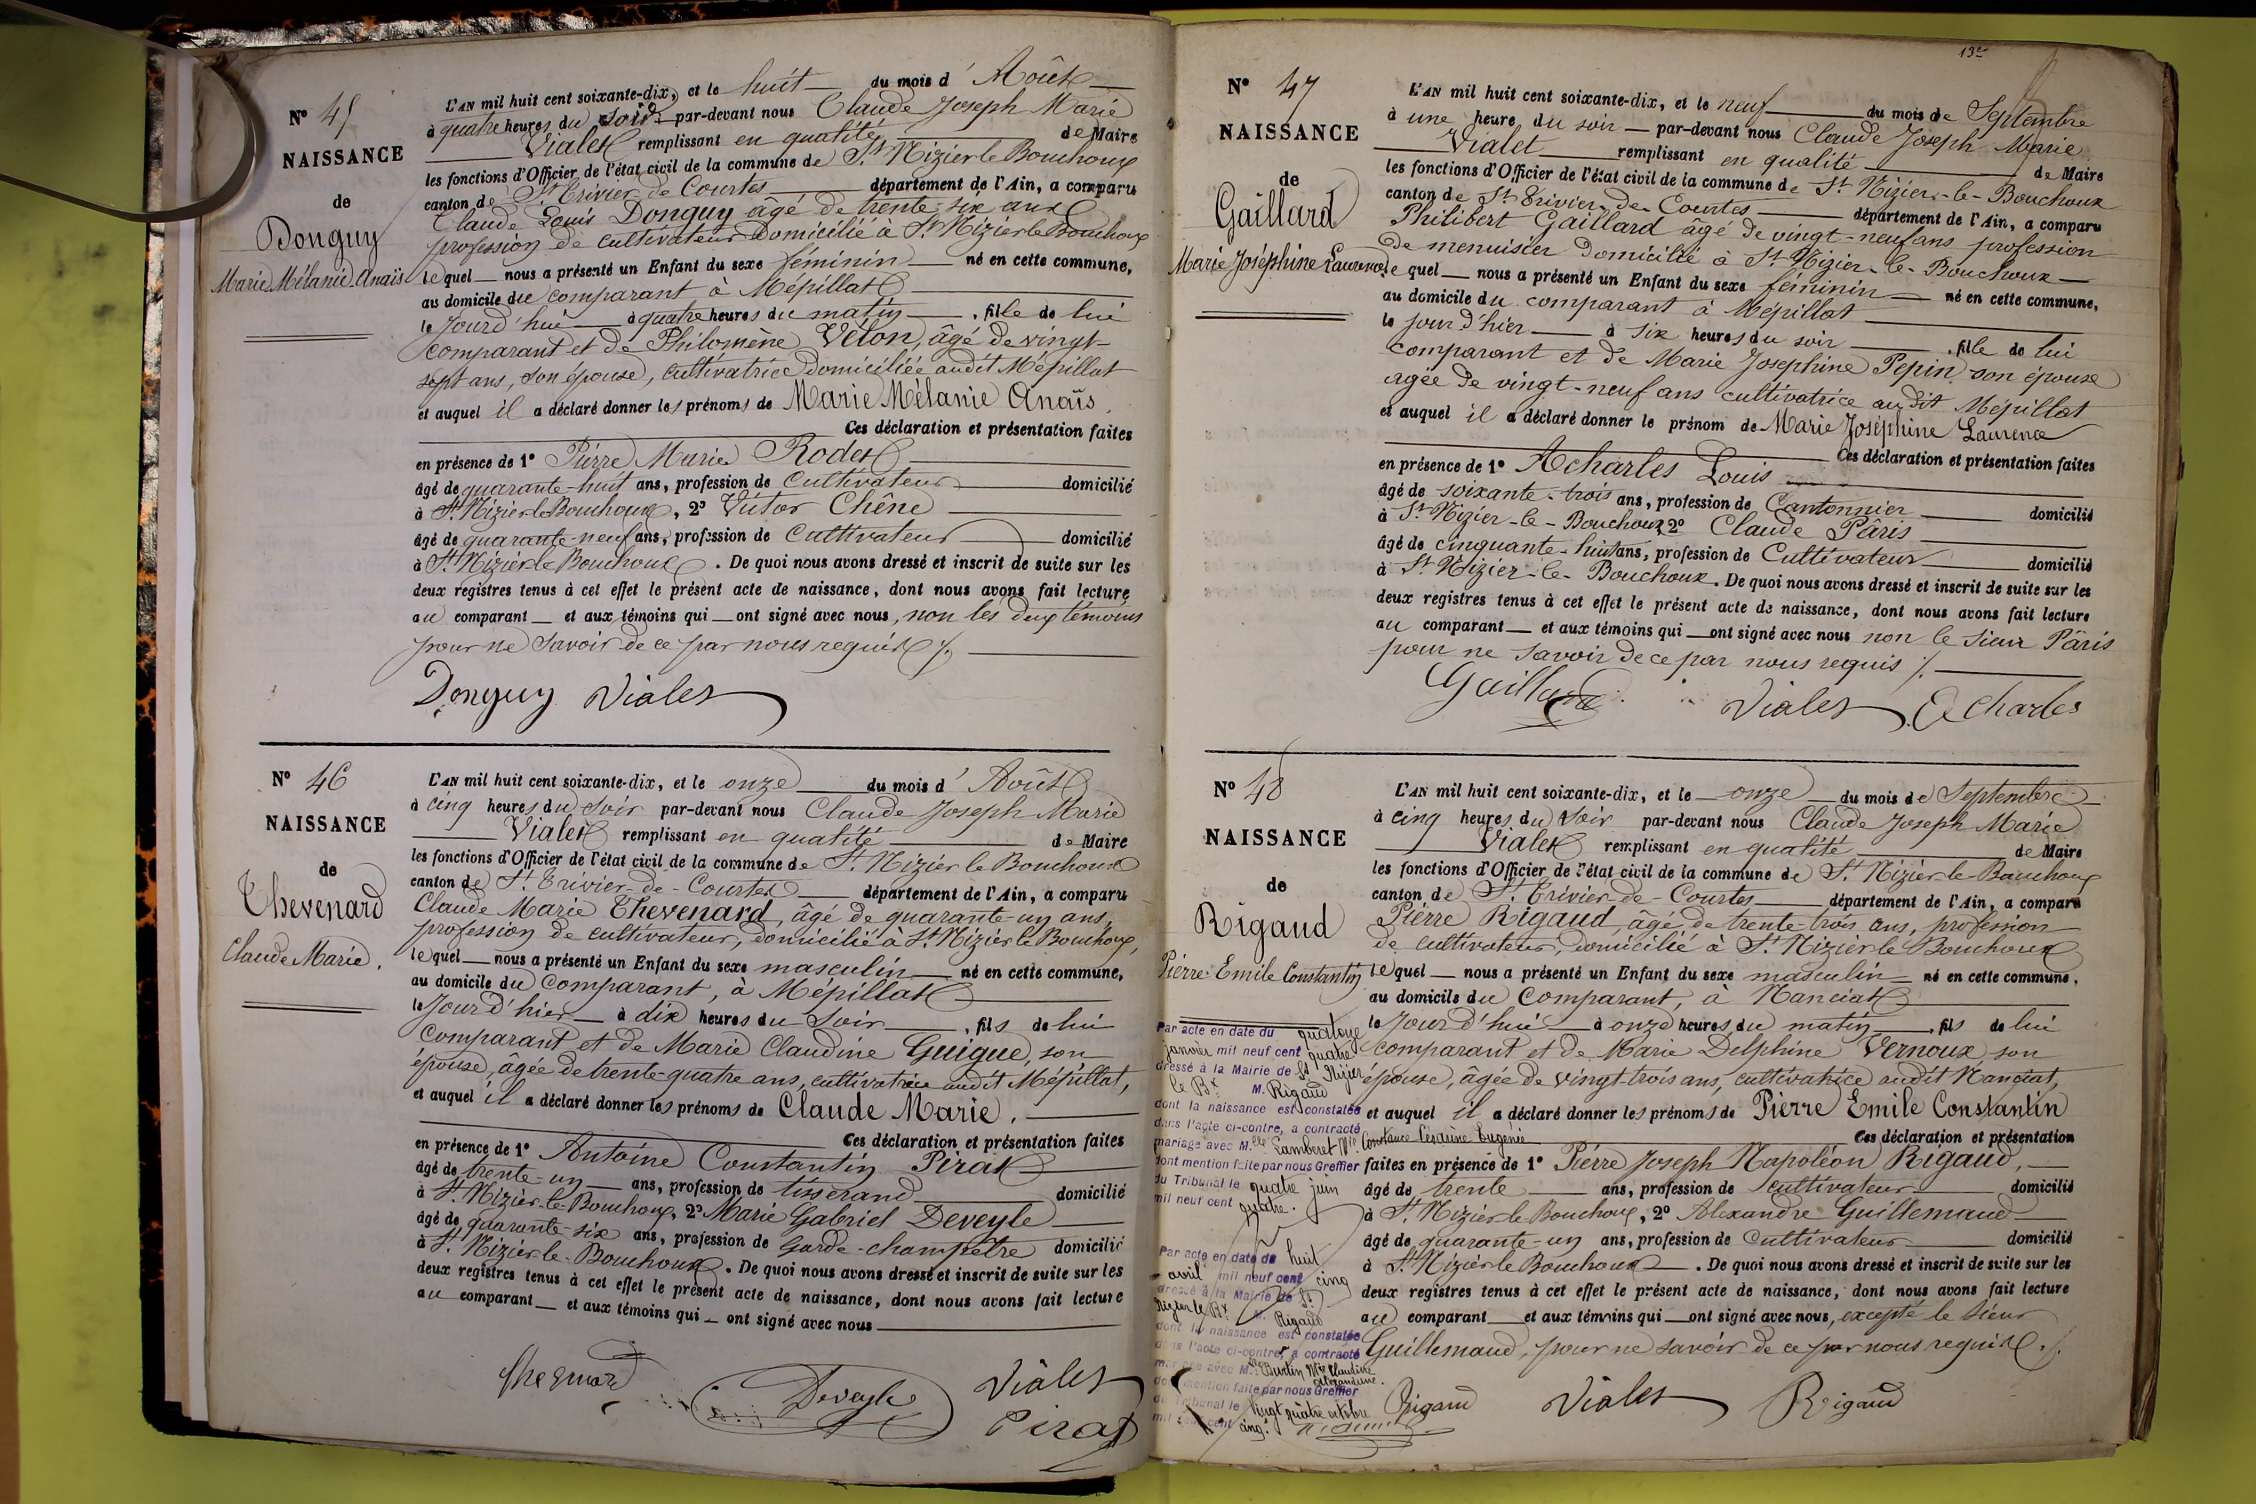 N° 45
NAISSANCE
de
Donguy
Marie Mélanie Anaïs
L'AN mil huit cent soixante-dix, et le huit du mois d' Août
à quatre heures du soir par-devant nous Claude Joseph Marie
Vialet remplissant en qualité de Maire
les fonctions d'Officier de l'état civil de la commune de St Nizier le Bouchoux
canton de St Trivier de Courtes département de l'Ain, a comparu
Claude Louis Donguy âgé de trente-six ans
profession de cultivateur domicilié à St Nizier le Bouchoux
lequel nous a présenté un Enfant du sexe féminin né en cette commune,
au domicile du comparant à Mépillat
le jourd'hui à quatre heures du matin, fille de lui
comparant et de Philomène Vélon, âgé de vingt-
sept ans, son épouse, cultivatrice domiciliée audit Mépillat
et auquel il a déclaré donner les prénoms de Marie Mélanie Anaïs.
Ces déclaration et présentation faites
en présence de 1° Pierre Marie Rodet
âgé de quarante-huit ans, profession de cultivateur domicilié
à St Nizier le Bouchoux, 2° Victor Chêne
âgé de quarante-neuf ans, profession de cultivateur domicilié
à St Nizier le Bouchoux. De quoi nous avons dressé et inscrit de suite sur les
deux registres tenus à cet effet le présent acte de naissance, dont nous avons fait lecture
au comparant et aux témoins qui ont signé avec nous, non les deux témoins
pour ne savoir de ce par nous requis /.
Donguy Vialet
N° 46
NAISSANCE
de
Thevenard
Claude Marie.
L'AN mil huit cent soixante-dix, et le onze du mois d' Août
à cinq heures du soir par-devant nous Claude Joseph Marie
Vialet remplissant en qualité de Maire
les fonctions d'Officier de l'état civil de la commune de St Nizier le Bouchoux
canton de St Trivier-de-Courtes département de l'Ain, a comparu
Claude Marie Thevenard, âgé de quarante-un ans,
profession de cultivateur, domicilié à St Nizier le Bouchoux,
lequel nous a présenté un Enfant du sexe masculin né en cette commune,
au domicile du comparant, à Mépillat
le jour d'hier à dix heures du soir, fils de lui
comparant et de Marie Claudine Guigue, son
épouse, âgée de trente-quatre ans, cultivatrice audit Mépillat,
et auquel il a déclaré donner les prénoms de Claude Marie.
Ces déclaration et présentation faites
en présence de 1° Antoine Constantin Pirat
âgé de trente-un ans, profession de tisserand domicilié
à St Nizier-le-Bouchoux, 2° Marie Gabriel Deveyle
âgé de quarante-six ans, profession de Garde-champêtre domicilié
à St Nizier-le-Bouchoux. De quoi nous avons dressé et inscrit de suite sur les
deux registres tenus à cet effet le présent acte de naissance, dont nous avons fait lecture
au comparant et aux témoins qui ont signé avec nous
Deveyle Vialet
Pirat
13e
N° 47
NAISSANCE
de
Gaillard
Marie Joséphine Laurence
L'AN mil huit cent soixante-dix, et le neuf du mois de Septembre
à une heure du soir par-devant nous Claude Joseph Marie
Vialet remplissant en qualité de Maire
les fonctions d'Officier de l'état civil de la commune de St Nizier-le-Bouchoux
canton de St Trivier-de-Courtes département de l'Ain, a comparu
Philibert Gaillard âgé de vingt-neuf ans profession
de menuisier domicilié à St Nizier-le-Bouchoux
lequel nous a présenté un Enfant du sexe féminin né en cette commune,
au domicile du comparant à Mépillat
le jour d'hier à six heures du soir, fille de lui
comparant et de Marie Josephine Pepin son épouse
agée de vingt-neuf ans cultivatrice audit Mépillat
et auquel il a déclaré donner le prénom de Marie Joséphine Laurence
Ces déclaration et présentation faites
en présence de 1° Acharles Louis
âgé de soixante-trois ans, profession de Cantonnier domicilié
à St Nizier-le-Bouchoux 2° Claude Pâris
âgé de cinquante-huit ans, profession de Cultivateur domicilié
à St Nizier-le-Bouchoux. De quoi nous avons dressé et inscrit de suite sur les
deux registres tenus à cet effet le présent acte de naissance, dont nous avons fait lecture
au comparant et aux témoins qui ont signé avec nous non le sieur Pâris
pour ne savoir de ce par nous requis /.
Gaillard Vialet Acharles
N° 48
NAISSANCE
de
Rigaud
Pierre Emile Constantin
L'AN mil huit cent soixante-dix, et le onze du mois de Septembre
à cinq heures du soir par-devant nous Claude Joseph Marie
Vialet remplissant en qualité de Maire
les fonctions d'Officier de l'état civil de la commune de St Nizier-le-Bouchoux
canton de St Trivier-de-Courtes département de l'Ain, a comparu
Pierre Rigaud, âgé de trente-trois ans, profession
de cultivateur, domicilié à St Nizier le Bouchoux
lequel nous a présenté un Enfant du sexe masculin né en cette commune,
au domicile du comparant, à Nanciat
le jourd'hui à onze heures du matin, fils de lui
comparant et de Marie Delphine Vernoux, son
épouse, âgée de vingt-trois ans, cultivatrice audit Nanciat,
et auquel il a déclaré donner les prénoms de Pierre Emile Constantin
Ces déclaration et présentation
faites en présence de 1° Pierre Joseph Napoléon Rigaud,
âgé de trente ans, profession de cultivateur domicilié
à St Nizier le Bouchoux, 2° Alexandre Guillemaud
âgé de quarante-un ans, profession de cultivateur domicilié
à St Nizier le Bouchoux. De quoi nous avons dressé et inscrit de suite sur les
deux registres tenus à cet effet le présent acte de naissance, dont nous avons fait lecture
au comparant et aux témoins qui ont signé avec nous, excepté le sieur
Guillemaud, pour ne savoir de ce par nous requis /.
Rigaud Vialet Rigaud
Par acte en date du quatorze
janvier mil neuf cent quatre
dressé à la Mairie de St Nizier
le Bx M. Rigaud
dont la naissance est constatée
dans l'acte ci-contre, a contracté
mariage avec Melle Lamberet Mie Constance Césarine Eugénie
dont mention faite par nous Greffier
du Tribunal le quatre juin
mil neuf cent quatre.
Par acte en date du huit
avril mil neuf cent cinq
dressé à la Mairie de St
Nizier le Bx M. Rigaud
dont la naissance est constatée
dans l'acte ci-contre, a contracté
mariage avec Melle Burtin Mie Claudine
Alexandrine.
dont mention faite par nous Greffier
du Tribunal le vingt quatre octobre
mil neuf cent cinq.